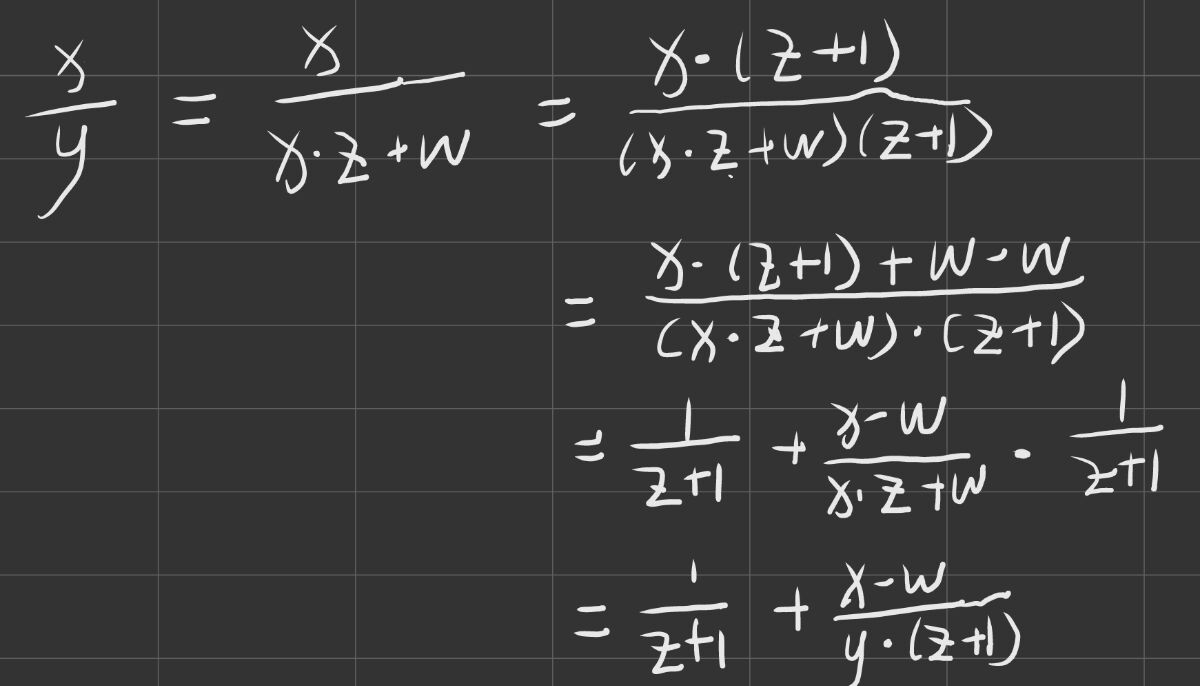 x/y = x/(x·z+w) = x·(z+1)/((x·z+w)(z+1))
= (x·(z+1)+w-w)/((x·z+w)·(z+1))
= 1/(z+1) + (x-w)/(x·z+w) · 1/(z+1)
= 1/(z+1) + (x-w)/(y·(z+1))